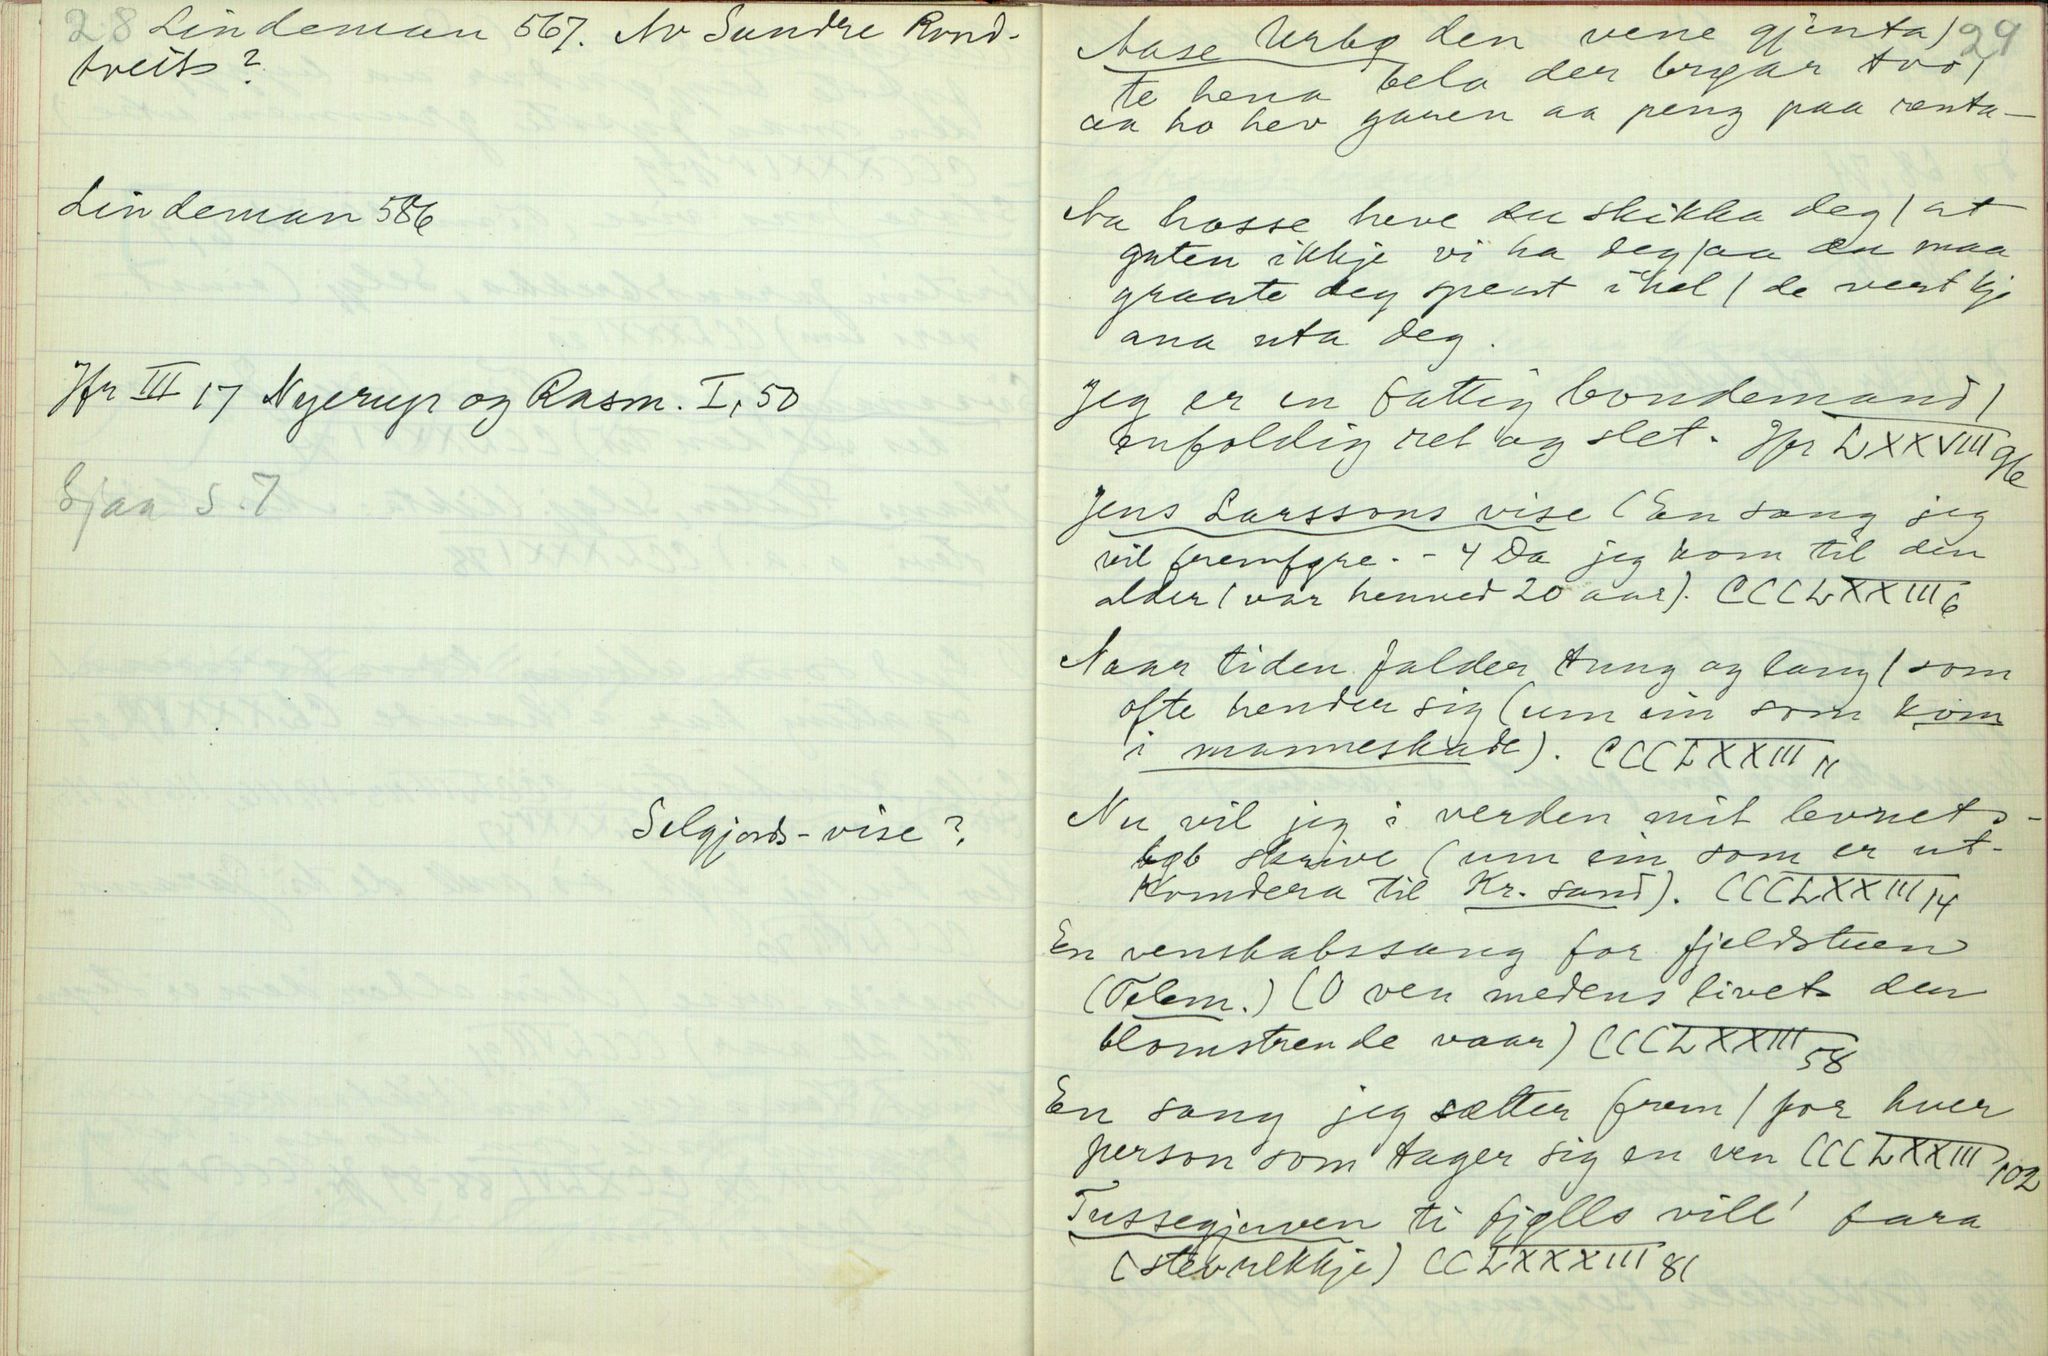 28 Lindeman 567. Av Sundre Rond-
treits?
Lindeman 586
Jfr III 17 Nyerup og Rasm. I, 50
Sjaa S. 7
Selgjords-vise?
29
Aase Urbø den vene gjenta /
te hena bela der brgar tvo /
aa ho hev garen aa peng paa renta —
Aa hosse heve du skikka deg / at
guten ikkje vi ha deg / aa du maa
graate deg speast ihel / de vert kje
ana uta deg.
Jeg er en fattig bondemand /
enfoldig ret og slet. Jfr LXXVIII 96
Jens Larssons vise (En sang jeg
vil fremføre. - 4 Da jeg kom til din
alder / var henved 20 aar). CCCLXXIII 6
Naar tiden falder tung og lang / som
ofte hender sig (um ein som kom
i manneskade). CCCLXXIII 11
Nu vil jeg i verden mit levnets-
løb skrive (um ein som er ut-
komdera til Kr. sand). CCCLXXIII 14
En venskabssang for fjeldstuen
(Telem.) (O ven medens livets den
blomstrende vaar) CCCLXXIII 58
En sang jeg sætter frem / for hver
person som tager sig en ven CCCLXXIII 102
Tussegjuven ti fjølls vill' fara
(stevrekkje) CCLXXXIII 81